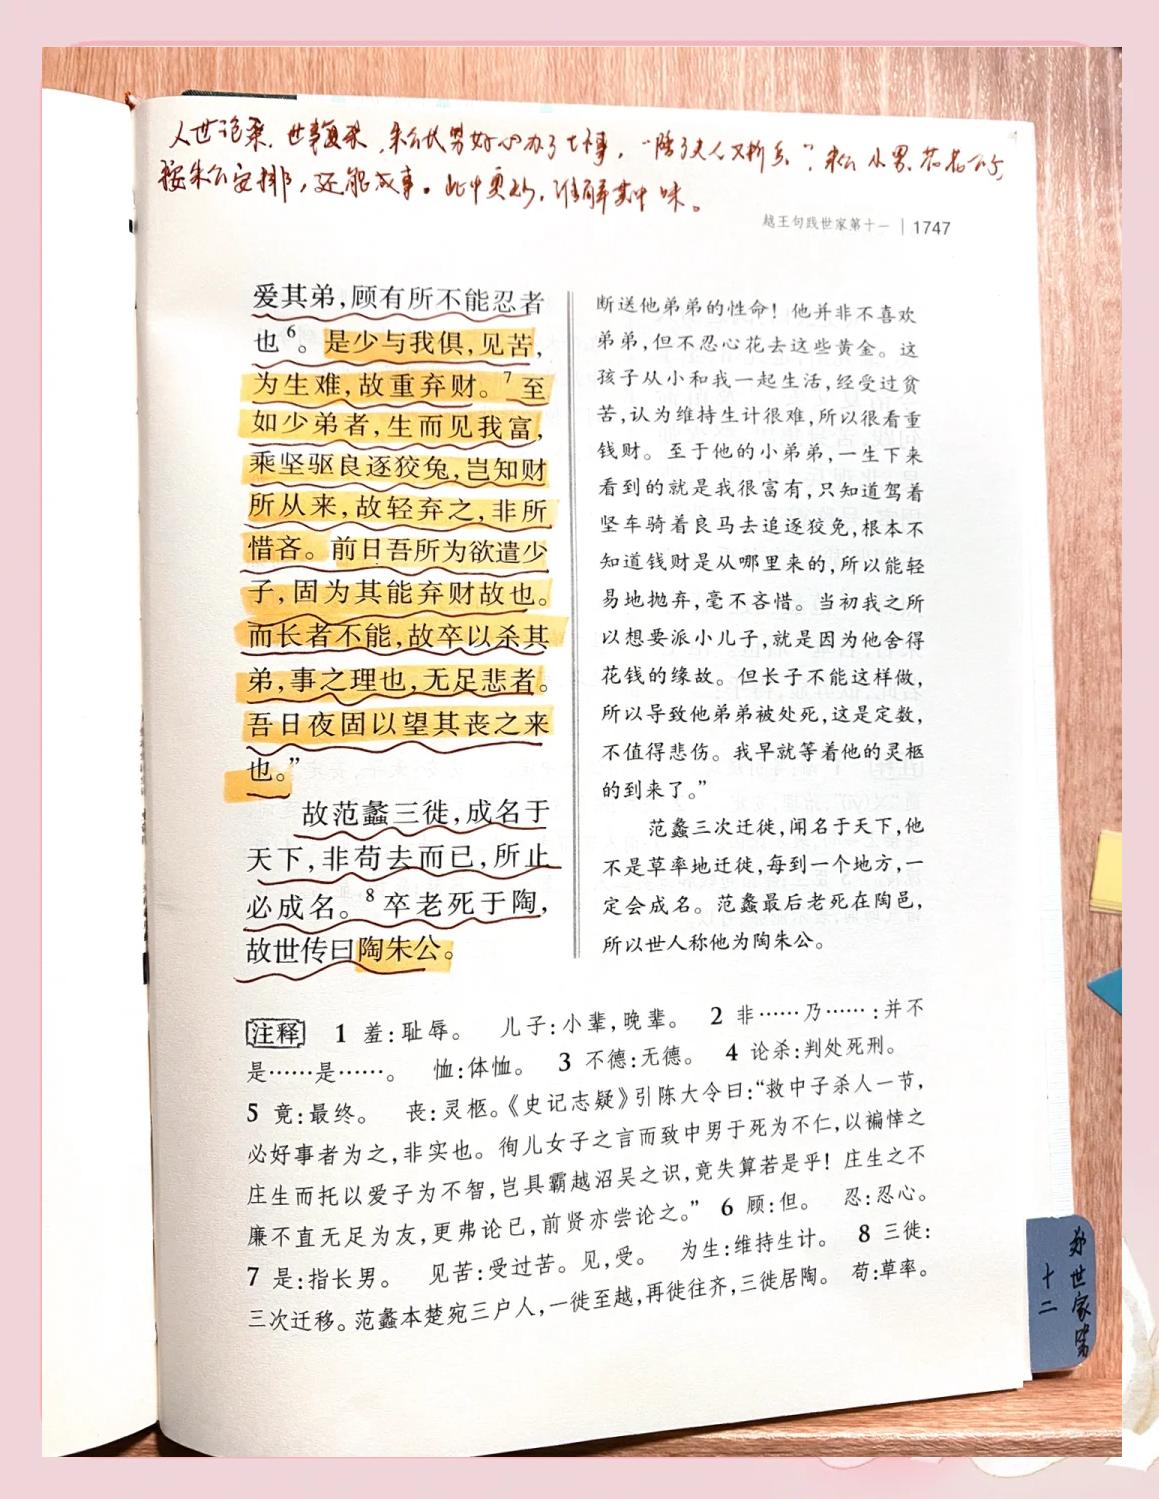 人世沧桑，世事复杂，朱公长男好心办了坏事，“陪了夫人又折兵”？朱公小男、花花公子，
按朱公安排，还能成事。此中更妙，谁解其中味。
越王句践世家第十一 | 1747
爱其弟，顾有所不能忍者
也⁶。是少与我俱，见苦，
为生难，故重弃财。⁷至
如少弟者，生而见我富，
乘坚驱良逐狡兔，岂知财
所从来，故轻弃之，非所
惜吝。前日吾所为欲遣少
子，固为其能弃财故也。
而长者不能，故卒以杀其
弟，事之理也，无足悲者。
吾日夜固以望其丧之来
也。”
故范蠡三徙，成名于
天下，非苟去而已，所止
必成名。⁸卒老死于陶，
故世传曰陶朱公。
断送他弟弟的性命！他并非不喜欢
弟弟，但不忍心花去这些黄金。这
孩子从小和我一起生活，经受过贫
苦，认为维持生计很难，所以很看重
钱财。至于他的小弟弟，一生下来
看到的就是我很富有，只知道驾着
坚车骑着良马去追逐狡兔，根本不
知道钱财是从哪里来的，所以能轻
易地抛弃，毫不吝惜。当初我之所
以想要派小儿子，就是因为他舍得
花钱的缘故。但长子不能这样做，
所以导致他弟弟被处死，这是定数，
不值得悲伤。我早就等着他的灵柩
的到来了。”
范蠡三次迁徙，闻名于天下，他
不是草率地迁徙，每到一个地方，一
定会成名。范蠡最后老死在陶邑，
所以世人称他为陶朱公。
注释 1 羞：耻辱。 儿子：小辈，晚辈。 2 非……乃……：并不
是……是……。 恤：体恤。 3 不德：无德。 4 论杀：判处死刑。
5 竟：最终。 丧：灵柩。《史记志疑》引陈大令曰：“救中子杀人一节，
必好事者为之，非实也。徇儿女子之言而致中男于死为不仁，以褊悻之
庄生而托以爱子为不智，岂具霸越沼吴之识，竟失算若是乎！庄生之不
廉不直无足为友，更弗论已，前贤亦尝论之。” 6 顾：但。 忍：忍心。
7 是：指长男。 见苦：受过苦。见，受。 为生：维持生计。 8 三徙：
三次迁移。范蠡本楚宛三户人，一徙至越，再徙往齐，三徙居陶。 苟：草率。
世家第
十二